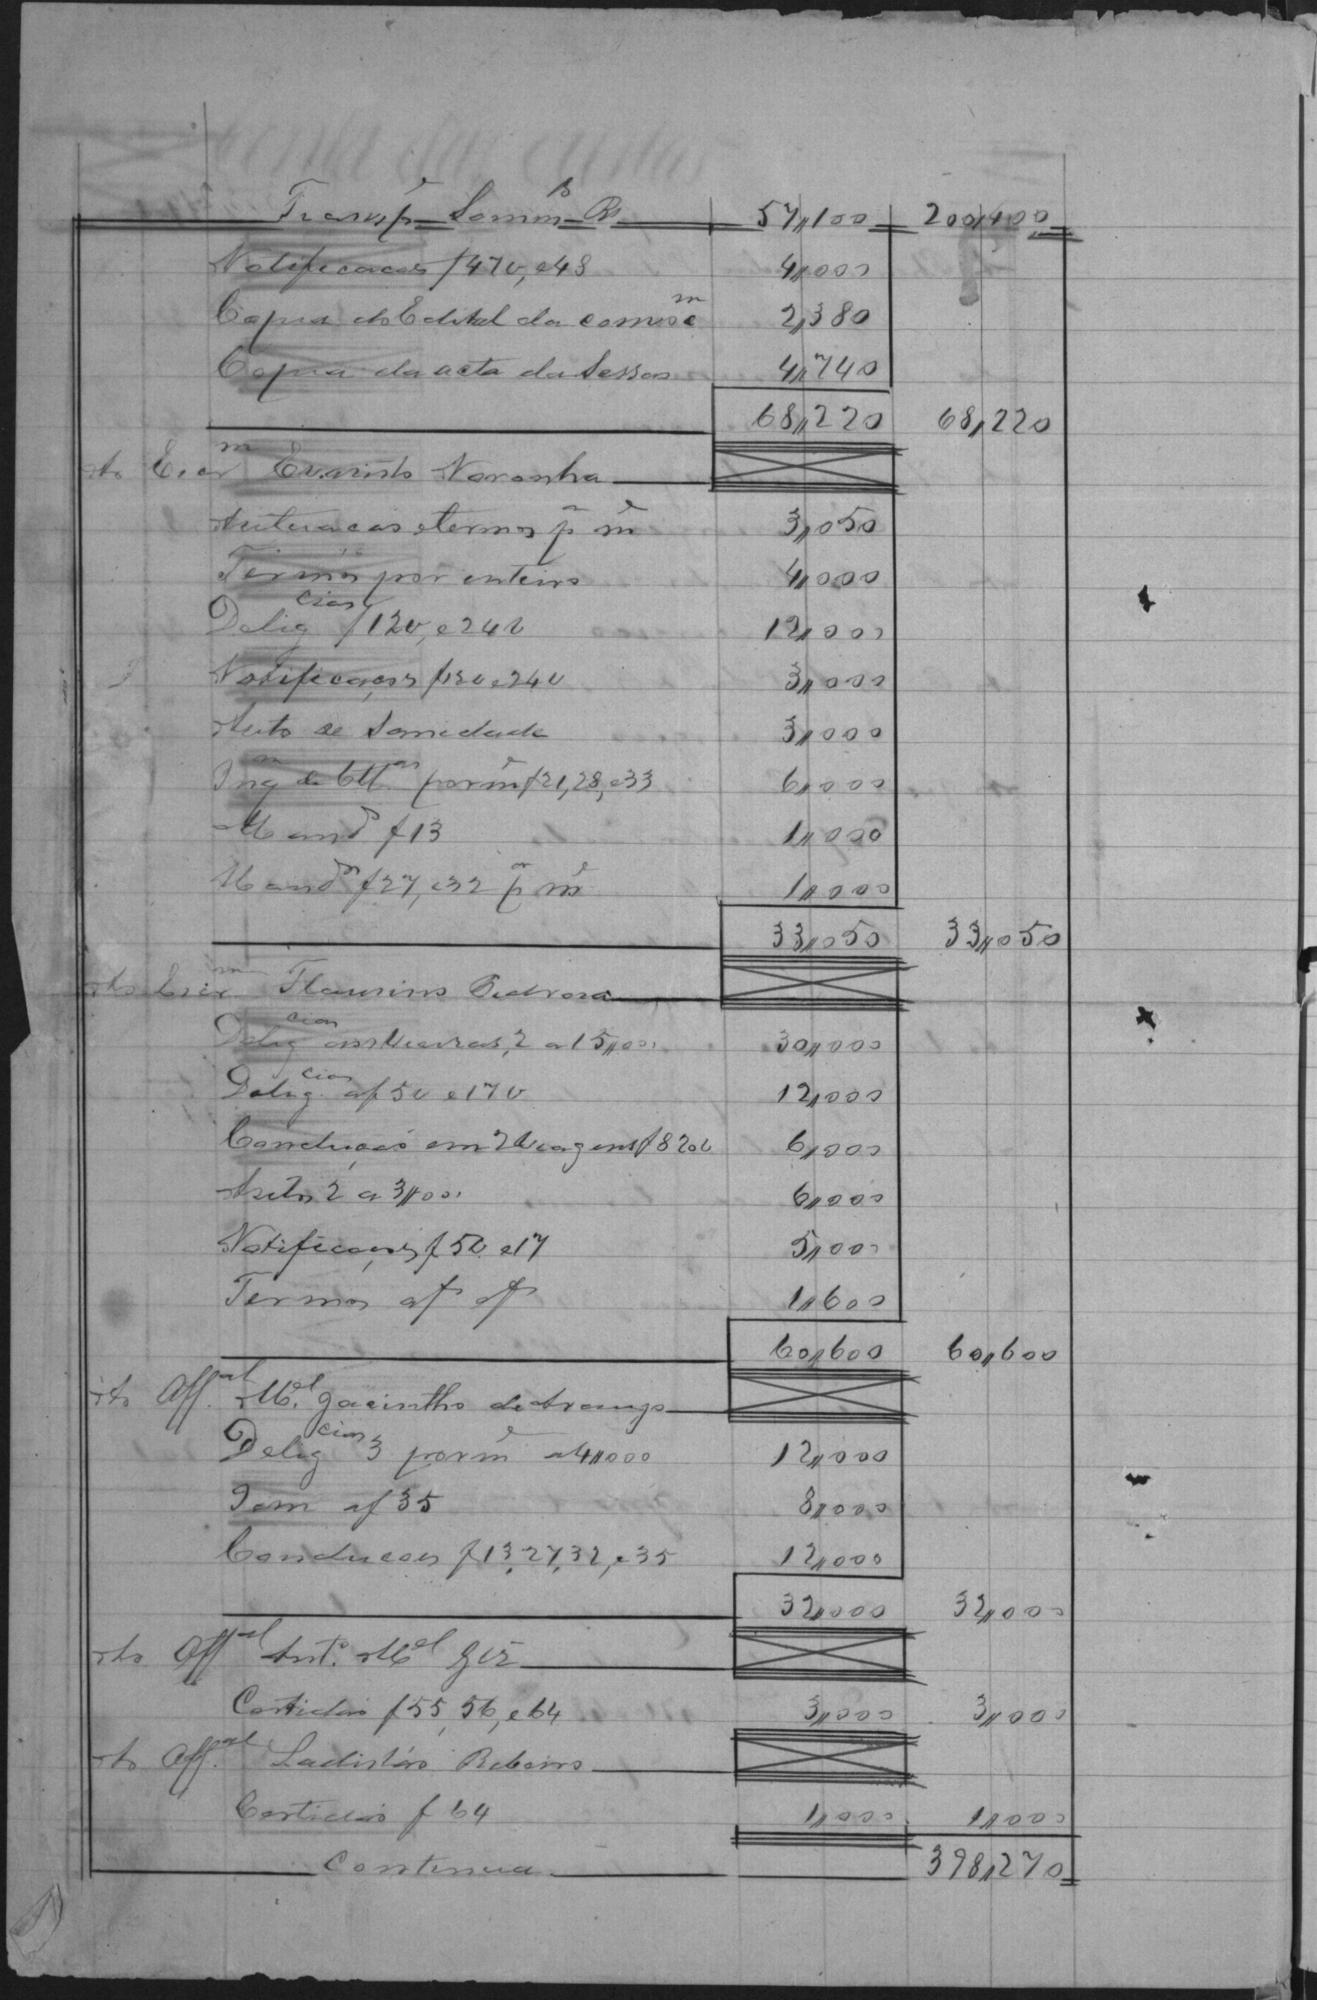 Transp.e Somm.s Rs 57,,100 200,400
Notificacoes f 47v, e 48 4,,000
Copia do Edital da comisc.m 2,380
Copia da acta da Sessão 4,,740
68,,220 68,220
Ao Escr.m Evaristo Noronha
Autuacão e termos p.r m.e 3,,050
Termos por inteiro 4,,000
Delig.cias f 12v, e 24v 12,,000
Notificações f 12v e 24v 3,,000
Auto de Sanidade 3,,000
Inq.m de tt.as por m.e f 21, 28, e 33 6,,000
Mand.o f 13 1,,000
Mand.os f 27, e 32 p.r m.e 1,,000
33,,050 33,,050
Ao Escr.m Flaurino Pedrosa
Delig.cias 2 a 15,,000 30,,000
Delig.cias af 5v e 17v 12,,000
Conducção em 2 Viagens f 8 20v 6,,000
Autos 2 a 3,,000 6,,000
Notificações f 5v e 17 5,,000
Termos af af 1,,600
60,,600 60,,600
Ao Aff.al M.el Jacintho de Araujo
Delig.cias 3 por m.e a 4,,000 12,,000
Idem af 35 8,,000
Conducoes f 13, 27, 32, e 35 12,,000
32,,000 32,,000
Ao Aff.al Ant.o M.el
Certidão f 55, 56, e 64 3,,000 3,,000
Ao Aff.al Ladisláo Ribeiro
Certidão f 64 1,,000 1,,000
Continua 398,,270